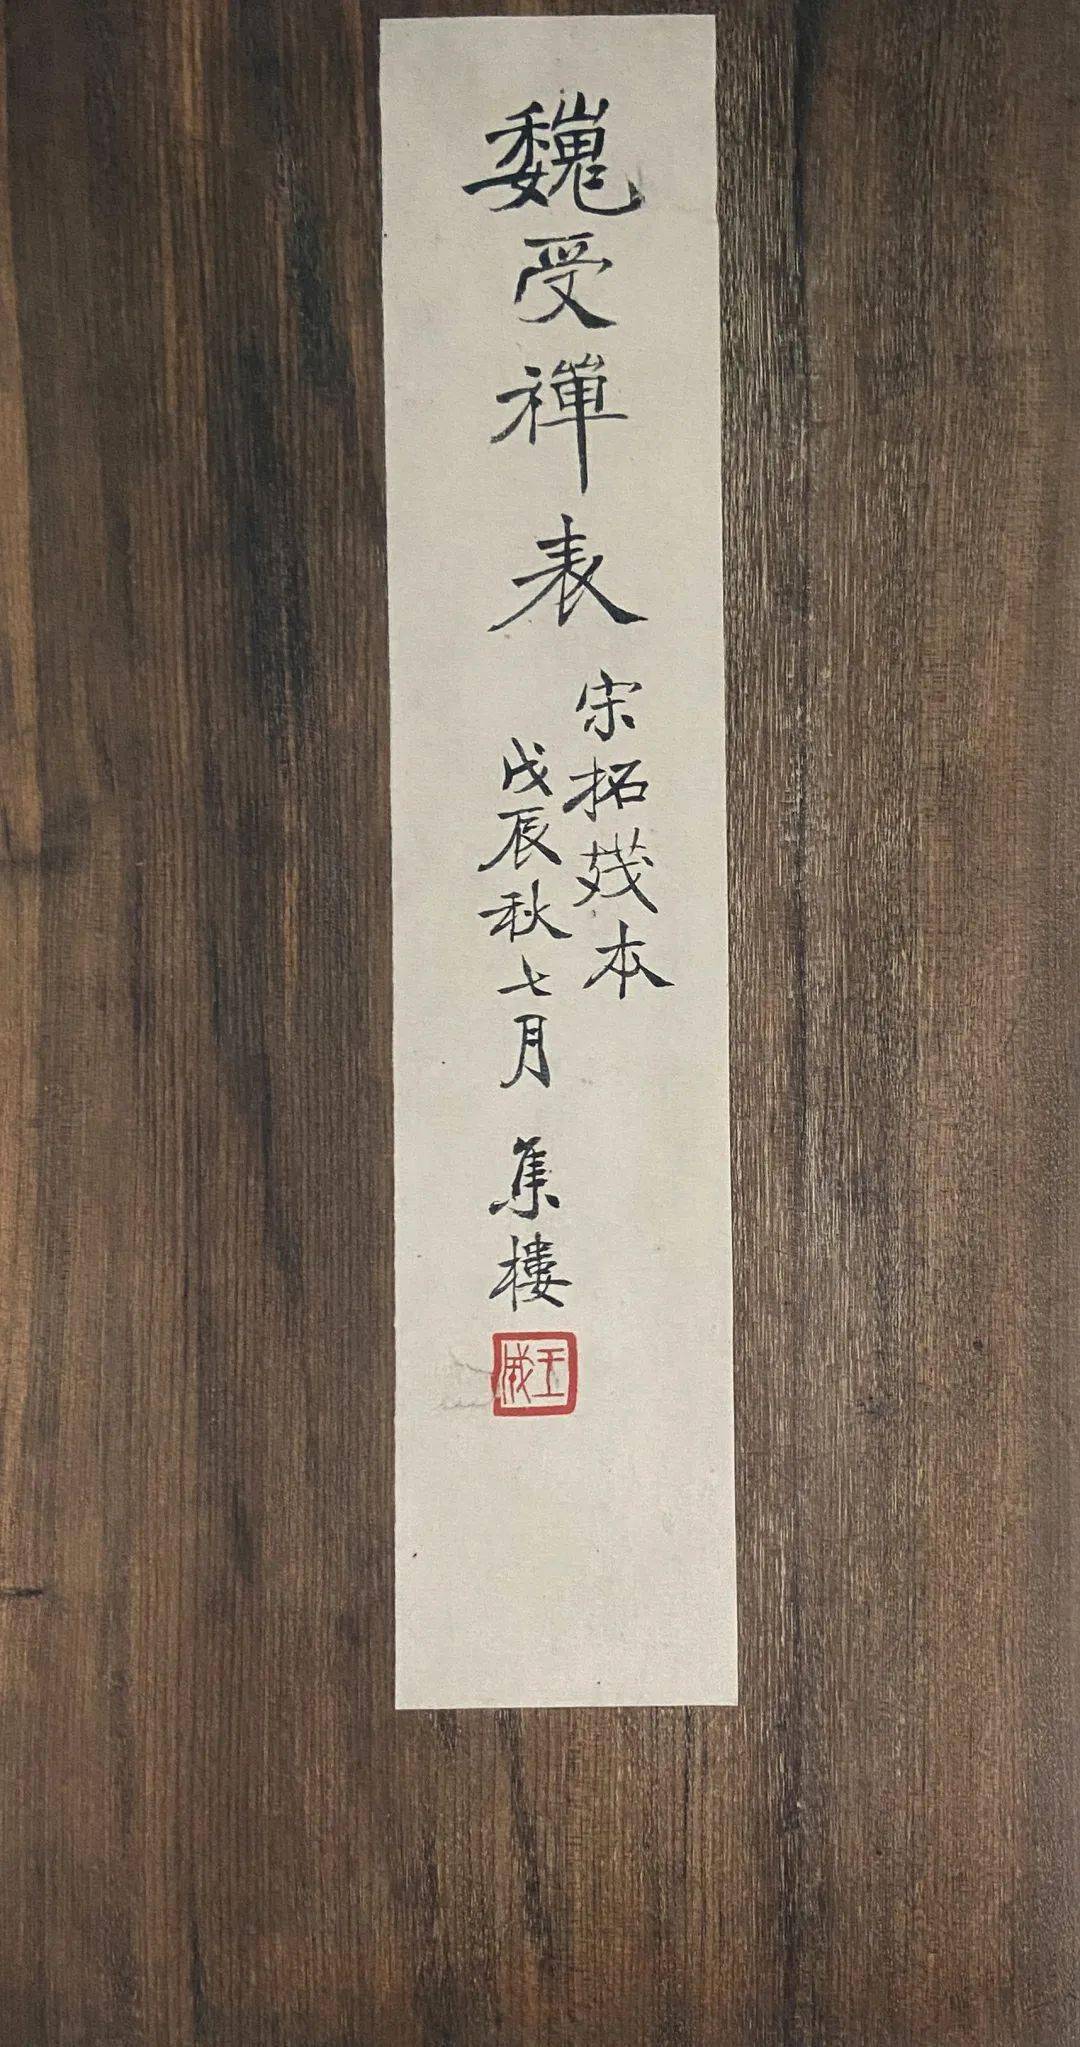 魏受禪表
宋拓残本
戊辰秋七月 集樓
王威